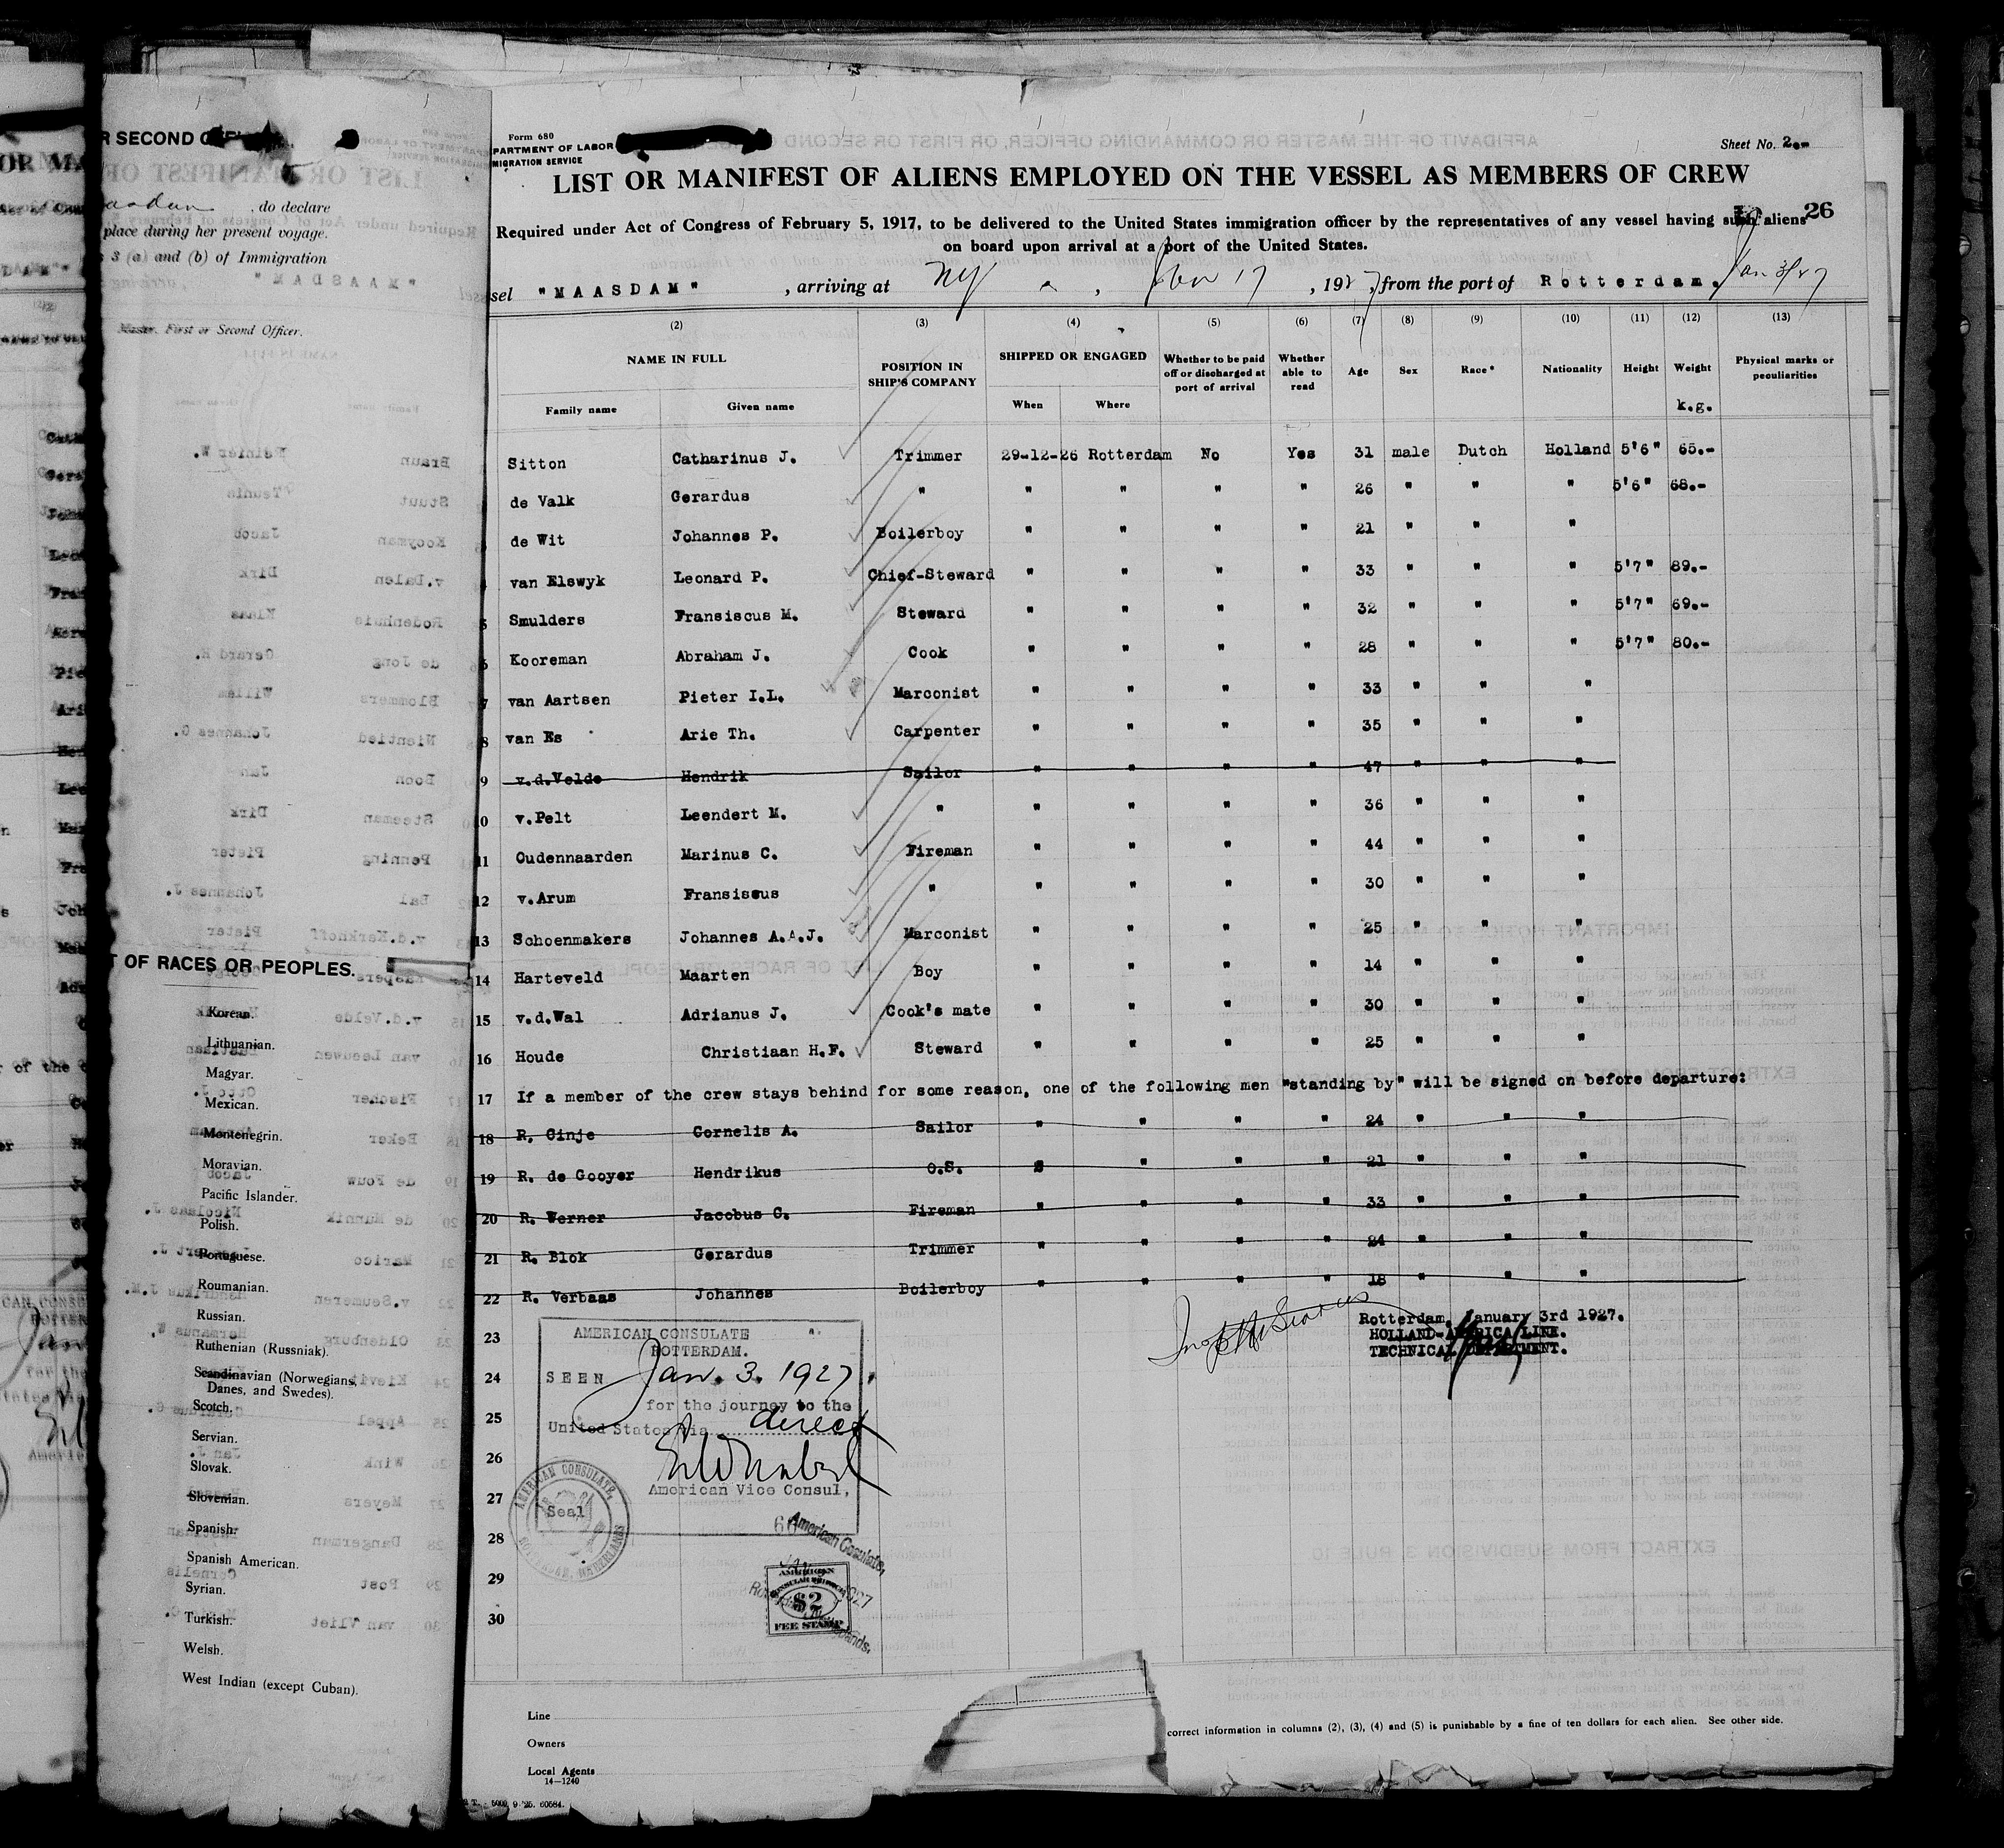 R SECOND
, do declare
place during her present voyage.
3 (a) and (b) of Immigration
Master, First or Second Officer.
T OF RACES OR PEOPLES.
Korean.
Lithuanian.
Magyar.
Mexican.
Montenegrin.
Moravian.
Pacific Islander.
Polish.
Portuguese.
Roumanian.
Russian.
Ruthenian (Russniak).
Scandinavian (Norwegians,
Danes, and Swedes).
Scotch.
Servian.
Slovak.
Slovenian.
Spanish.
Spanish American.
Syrian.
Turkish.
Welsh.
West Indian (except Cuban).
Form 680
PARTMENT OF LABOR
MIGRATION SERVICE
Sheet No. 2.-
LIST OR MANIFEST OF ALIENS EMPLOYED ON THE VESSEL AS MEMBERS OF CREW
26
Required under Act of Congress of February 5, 1917, to be delivered to the United States immigration officer by the representatives of any vessel having such aliens
on board upon arrival at a port of the United States.
sel "MAASDAM" , arriving at NY , Jan 17 , 1927, from the port of Rotterdam. Jan 3/27
(2) (3) (4) (5) (6) (7) (8) (9) (10) (11) (12) (13)
NAME IN FULL POSITION IN SHIP'S COMPANY SHIPPED OR ENGAGED Whether to be paid off or discharged at port of arrival Whether able to read Age Sex Race* Nationality Height Weight Physical marks or peculiarities
Family name Given name When Where k.g.
Sitton Catharinus J. Trimmer 29-12-26 Rotterdam No Yes 31 male Dutch Holland 5'6" 65.-
de Valk Gerardus " " " " " 26 " " " 5'6" 68.-
de Wit Johannes P. Boilerboy " " " " 21 " " "
van Elswyk Leonard P. Chief-Steward " " " " 33 " " " 5'7" 89.-
5 Smulders Fransiscus M. Steward " " " " 32 " " " 5'7" 69.-
6 Kooreman Abraham J. Cook " " " " 28 " " " 5'7" 80.-
7 van Aartsen Pieter I.L. Marconist " " " " 33 " " "
8 van Es Arie Th. Carpenter " " " " 35 " " "
9 v.d.Velde Hendrik Sailor " " " " 47 " " "
10 v.Pelt Leendert M. " " " " " 36 " " "
11 Oudennaarden Marinus C. Fireman " " " " 44 " " "
12 v.Arum Fransiscus " " " " " 30 " " "
13 Schoenmakers Johannes A.A.J. Marconist " " " " 25 " " "
14 Harteveld Maarten Boy " " " " 14 " " "
15 v.d.Wal Adrianus J. Cook's mate " " " " 30 " " "
16 Houde Christiaan H.F. Steward " " " " 25 " " "
17 If a member of the crew stays behind for some reason, one of the following men "standing by" will be signed on before departure:
18 R. Cinje Cornelis A. Sailor " " " " 24 " " "
19 R. de Gooyer Hendrikus O.S. " " " " 21 " " "
20 R. Werner Jacobus C. Fireman " " " " 33 " " "
21 R. Blok Gerardus Trimmer " " " " 24 " " "
22 R. Verbaas Johannes Boilerboy " " " " 18 " " "
23
24
25
26
27
28
29
30
Rotterdam, January 3rd 1927.
HOLLAND-AMERICA LINE.
TECHNICAL DEPARTMENT.
AMERICAN CONSULATE
ROTTERDAM.
SEEN Jan. 3. 1927.
for the journey to the
United States via direct
American Vice Consul,
Seal
AMERICAN CONSULATE,
American Cosulate,
AMERICAN
CONSULAR SERVICE
$2
FEE STAMP
Line
Owners
Local Agents
14—1240
correct information in columns (2), (3), (4) and (5) is punishable by a fine of ten dollars for each alien. See other side.